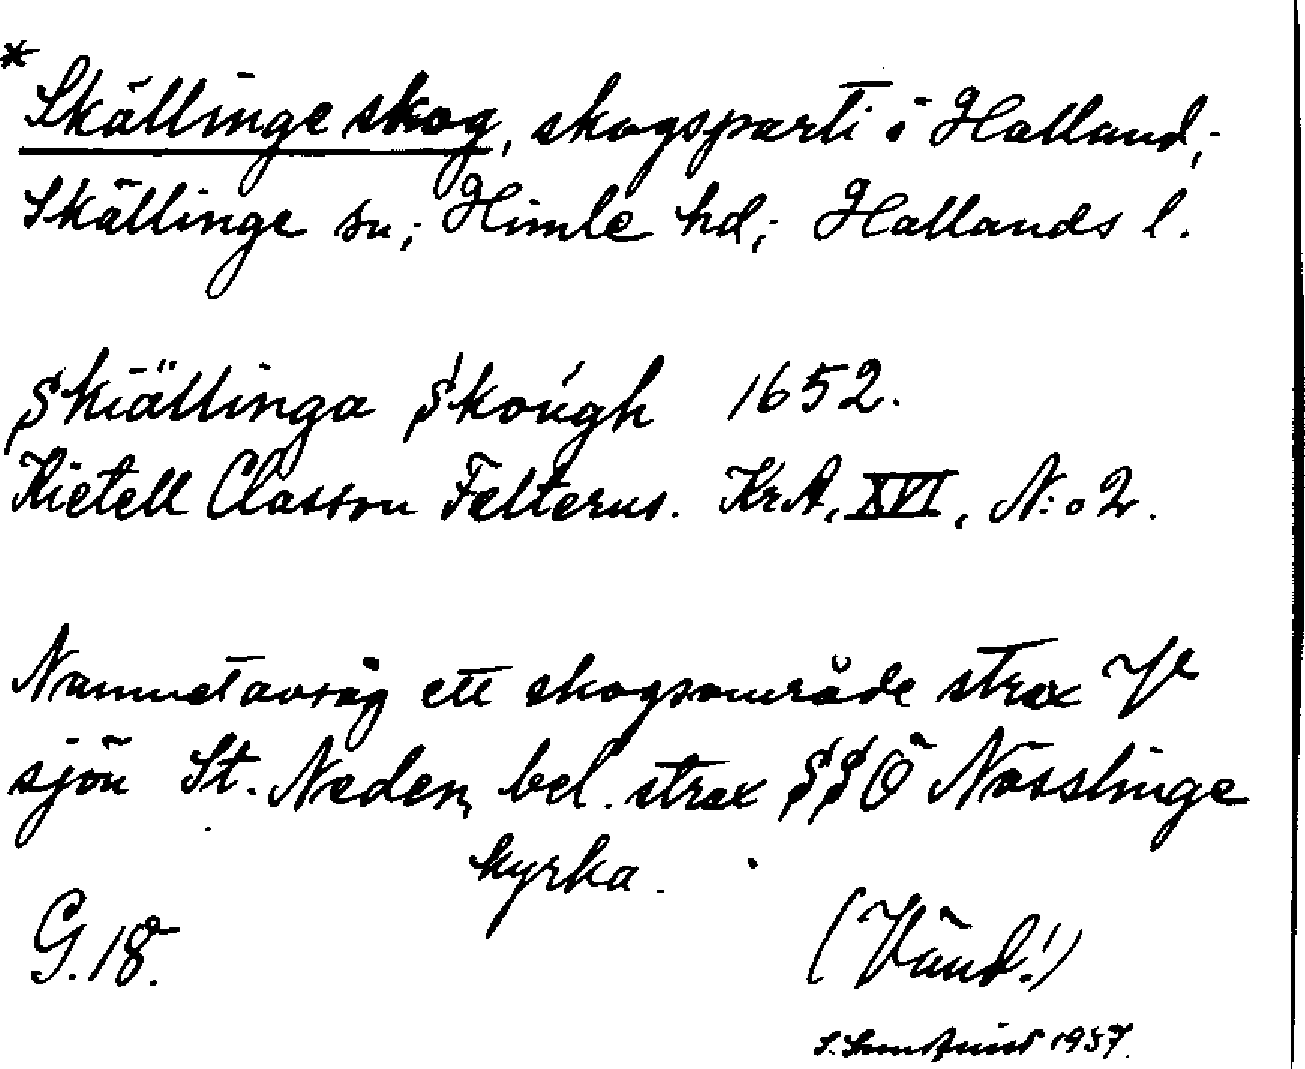 * Skällinge skog, skogsparti i Halland;
Skällinge sn; Himle hd; Hallands l.
Skiällinga Skough 1652.
Kietell Classon Felterus. KrA, XVI, N:o 2.
Namnet avsåg ett skogsområde strax V
sjön St. Neden, bel. strax SSÖ Nösslinge
kyrka.
G. 18.
(Vänd!)
1937.